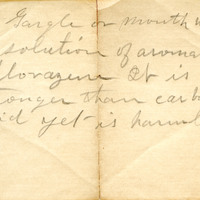 Gargle or mouth w
solution of aroma
llorazene It is
onger than carb
id yet is harml